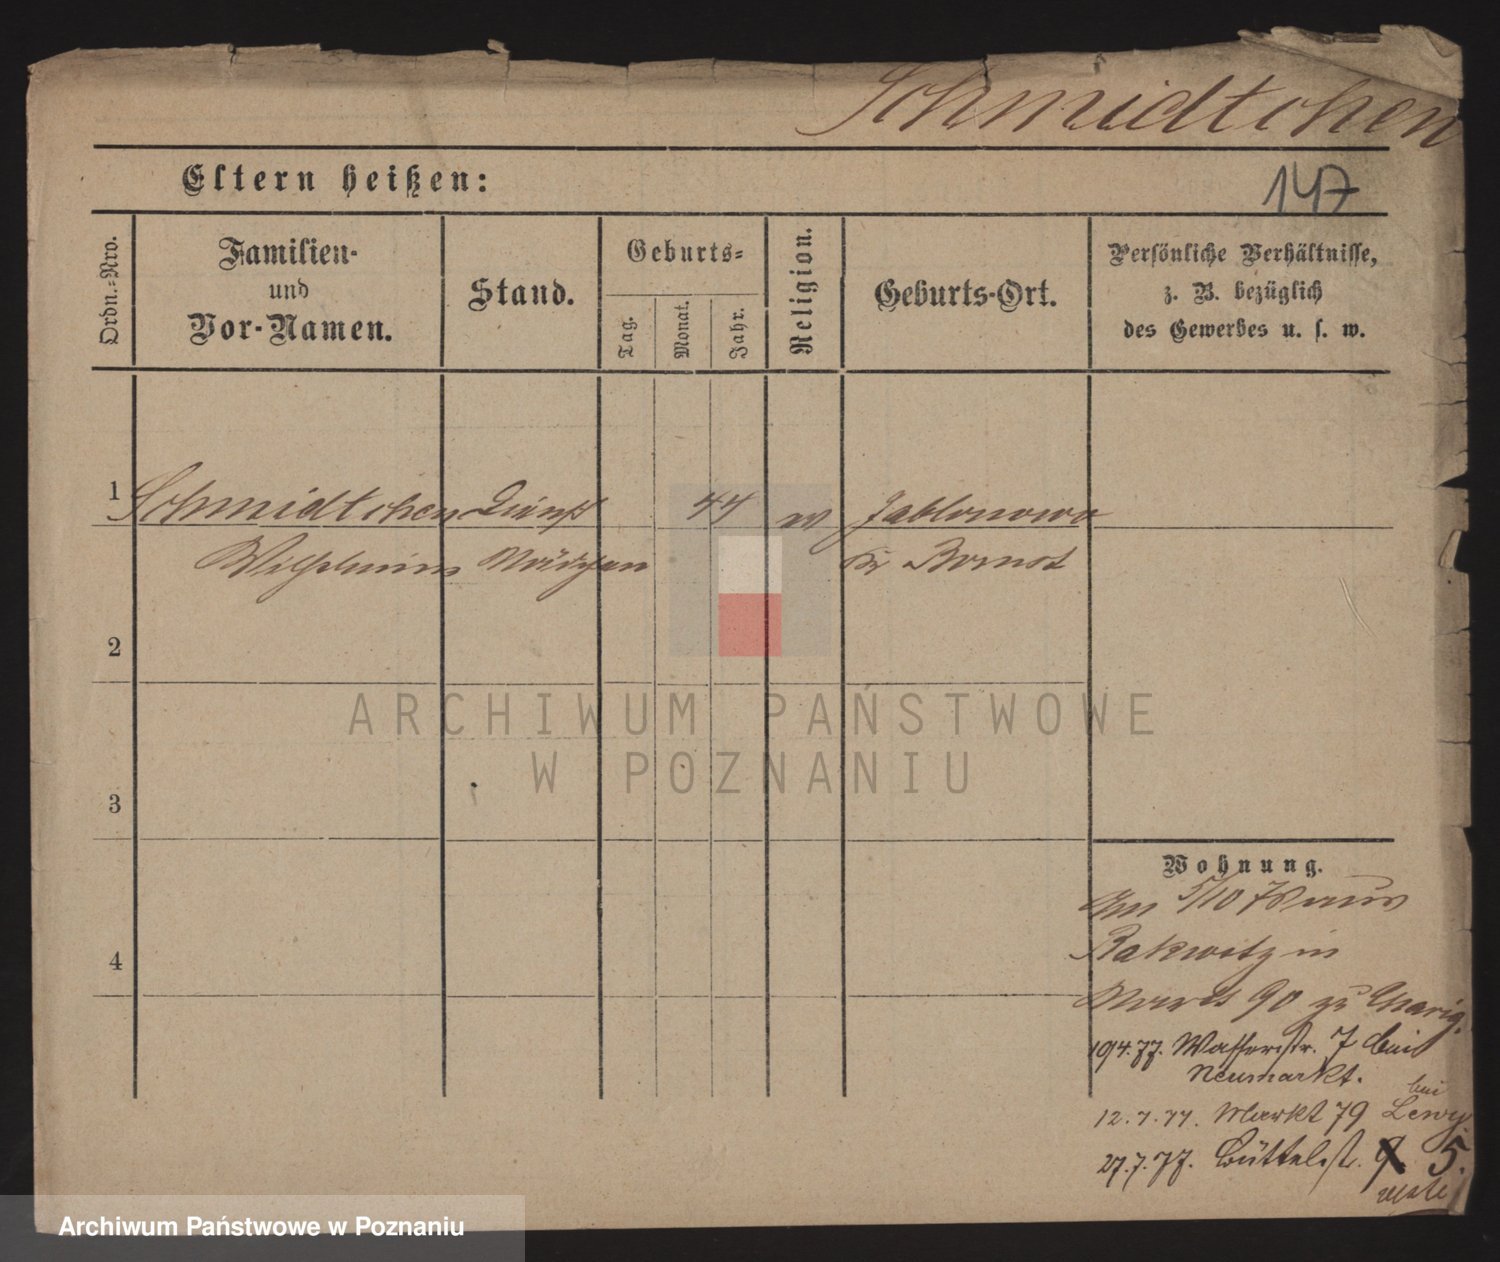 Schmidtchen
Eltern heißen:
147
Ordn.-Nro.
Familien-
und
Vor-Namen.
Stand.
Geburts-
Tag.
Monat.
Jahr.
Religion.
Geburts-Ort.
Persönliche Verhältnisse,
z. B. bezüglich
des Gewerbes u. s. w.
1
Schmidtchen Dienst 44 ev Jablonowo
Wilhelmine Mädchen Kr Bomst
2
3
4
ARCHIWUM PAŃSTWOWE
W POZNANIU
Wohnung.
5/10 76 aus
Rakwitz in
Markt 90 zu
19 4. 77. Wasserstr. 7 bei
Neumarkt.
12. 7. 77. Markt 79 bei Lewy.
27. 7. 77. Büttelstr. 5.
Archiwum Państwowe w Poznaniu